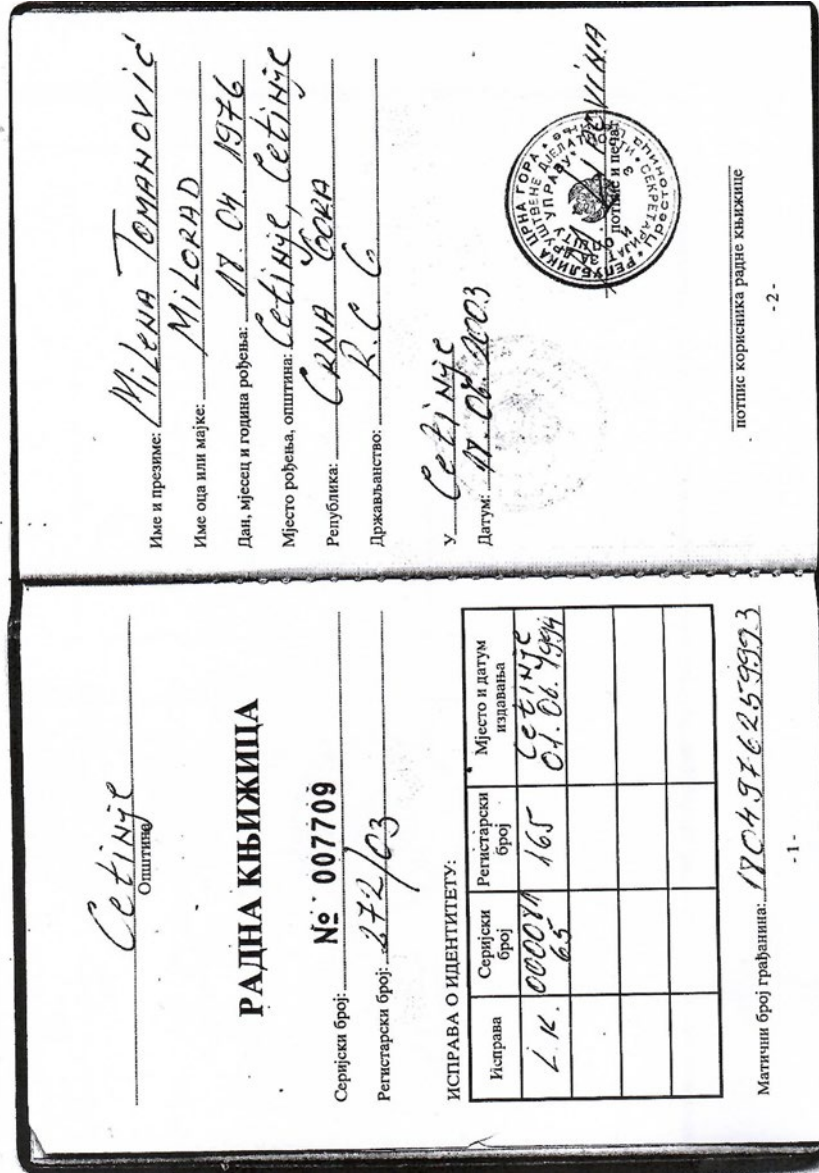 Cetinje
Општине
РАДНА КЊИЖИЦА
Серијски број: № 007709
Регистарски број: 272/03
ИСПРАВА О ИДЕНТИТЕТУ:
Исправа Серијски број Регистарски број Мјесто и датум издавања
L.K. 165 Cetinje 01.06.1994
Матични број грађанина:
-1-
Име и презиме: Milena Tomanović
Име оца или мајке: Milorad
Дан, мјесец и година рођења: 18.04.1976
Мјесто рођења, општина: Cetinje, Cetinje
Република: Crna Gora
Држављанство: R.C.G
У Cetinje
Датум: 2003
РЕПУБЛИКА ЦРНА ГОРА
СЕКРЕТАРИЈАТ ЗА ДРУШТВЕНЕ ДЈЕЛАТНОСТИ И ОПШТУ УПРАВУ
потпис и печат
потпис корисника радне књижице
-2-